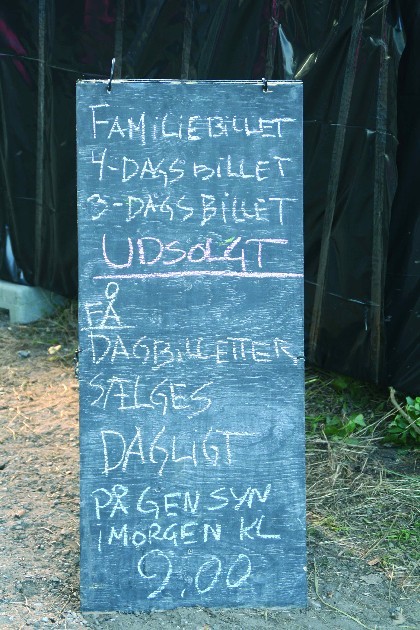 FAMILIEBILLET
4-DAGSBILLET
3-DAGSBILLET
UDSOLGT
FÅ
DAGBILLETTER
SÆLGES
DAGLIGT
PÅ GENSYN
iMORGEN KL
9.00